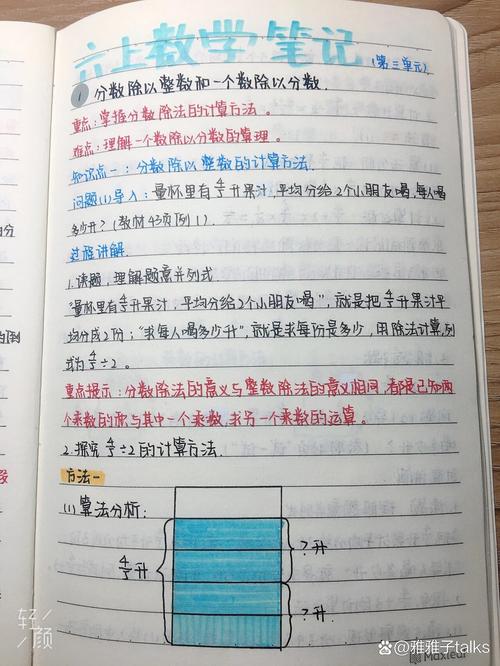 六上数学笔记(第三单元)
1 分数除以整数和一个数除以分数.
重点:掌握分数除法的计算方法。
难点:理解一个数除以分数的算理。
知识点一:分数除以整数的计算方法.
问题(1)导入:量杯里有4/5升果汁,平均分给2个小朋友喝,每人喝
多少升?(教材43页例1).
过程讲解.
1.读题,理解题意并列式
"量杯里有4/5升果汁,平均分给2个小朋友喝",就是把4/5升果汁平
均分成2份;"求每人喝多少升",就是求每份是多少,用除法计算,列
式为4/5÷2。
重点提示:分数除法的意义与整数除法的意义相同,都是已知两
个乘数的积与其中一个乘数,求另一个乘数的运算。
2.探究4/5÷2的计算方法.
方法一
(1)算法分析:
4/5升
?升
?升
轻颜
@雅雅子talks
Maxleaf